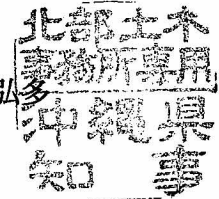 北部土木
事務所専用
弘多
沖縄県
知事